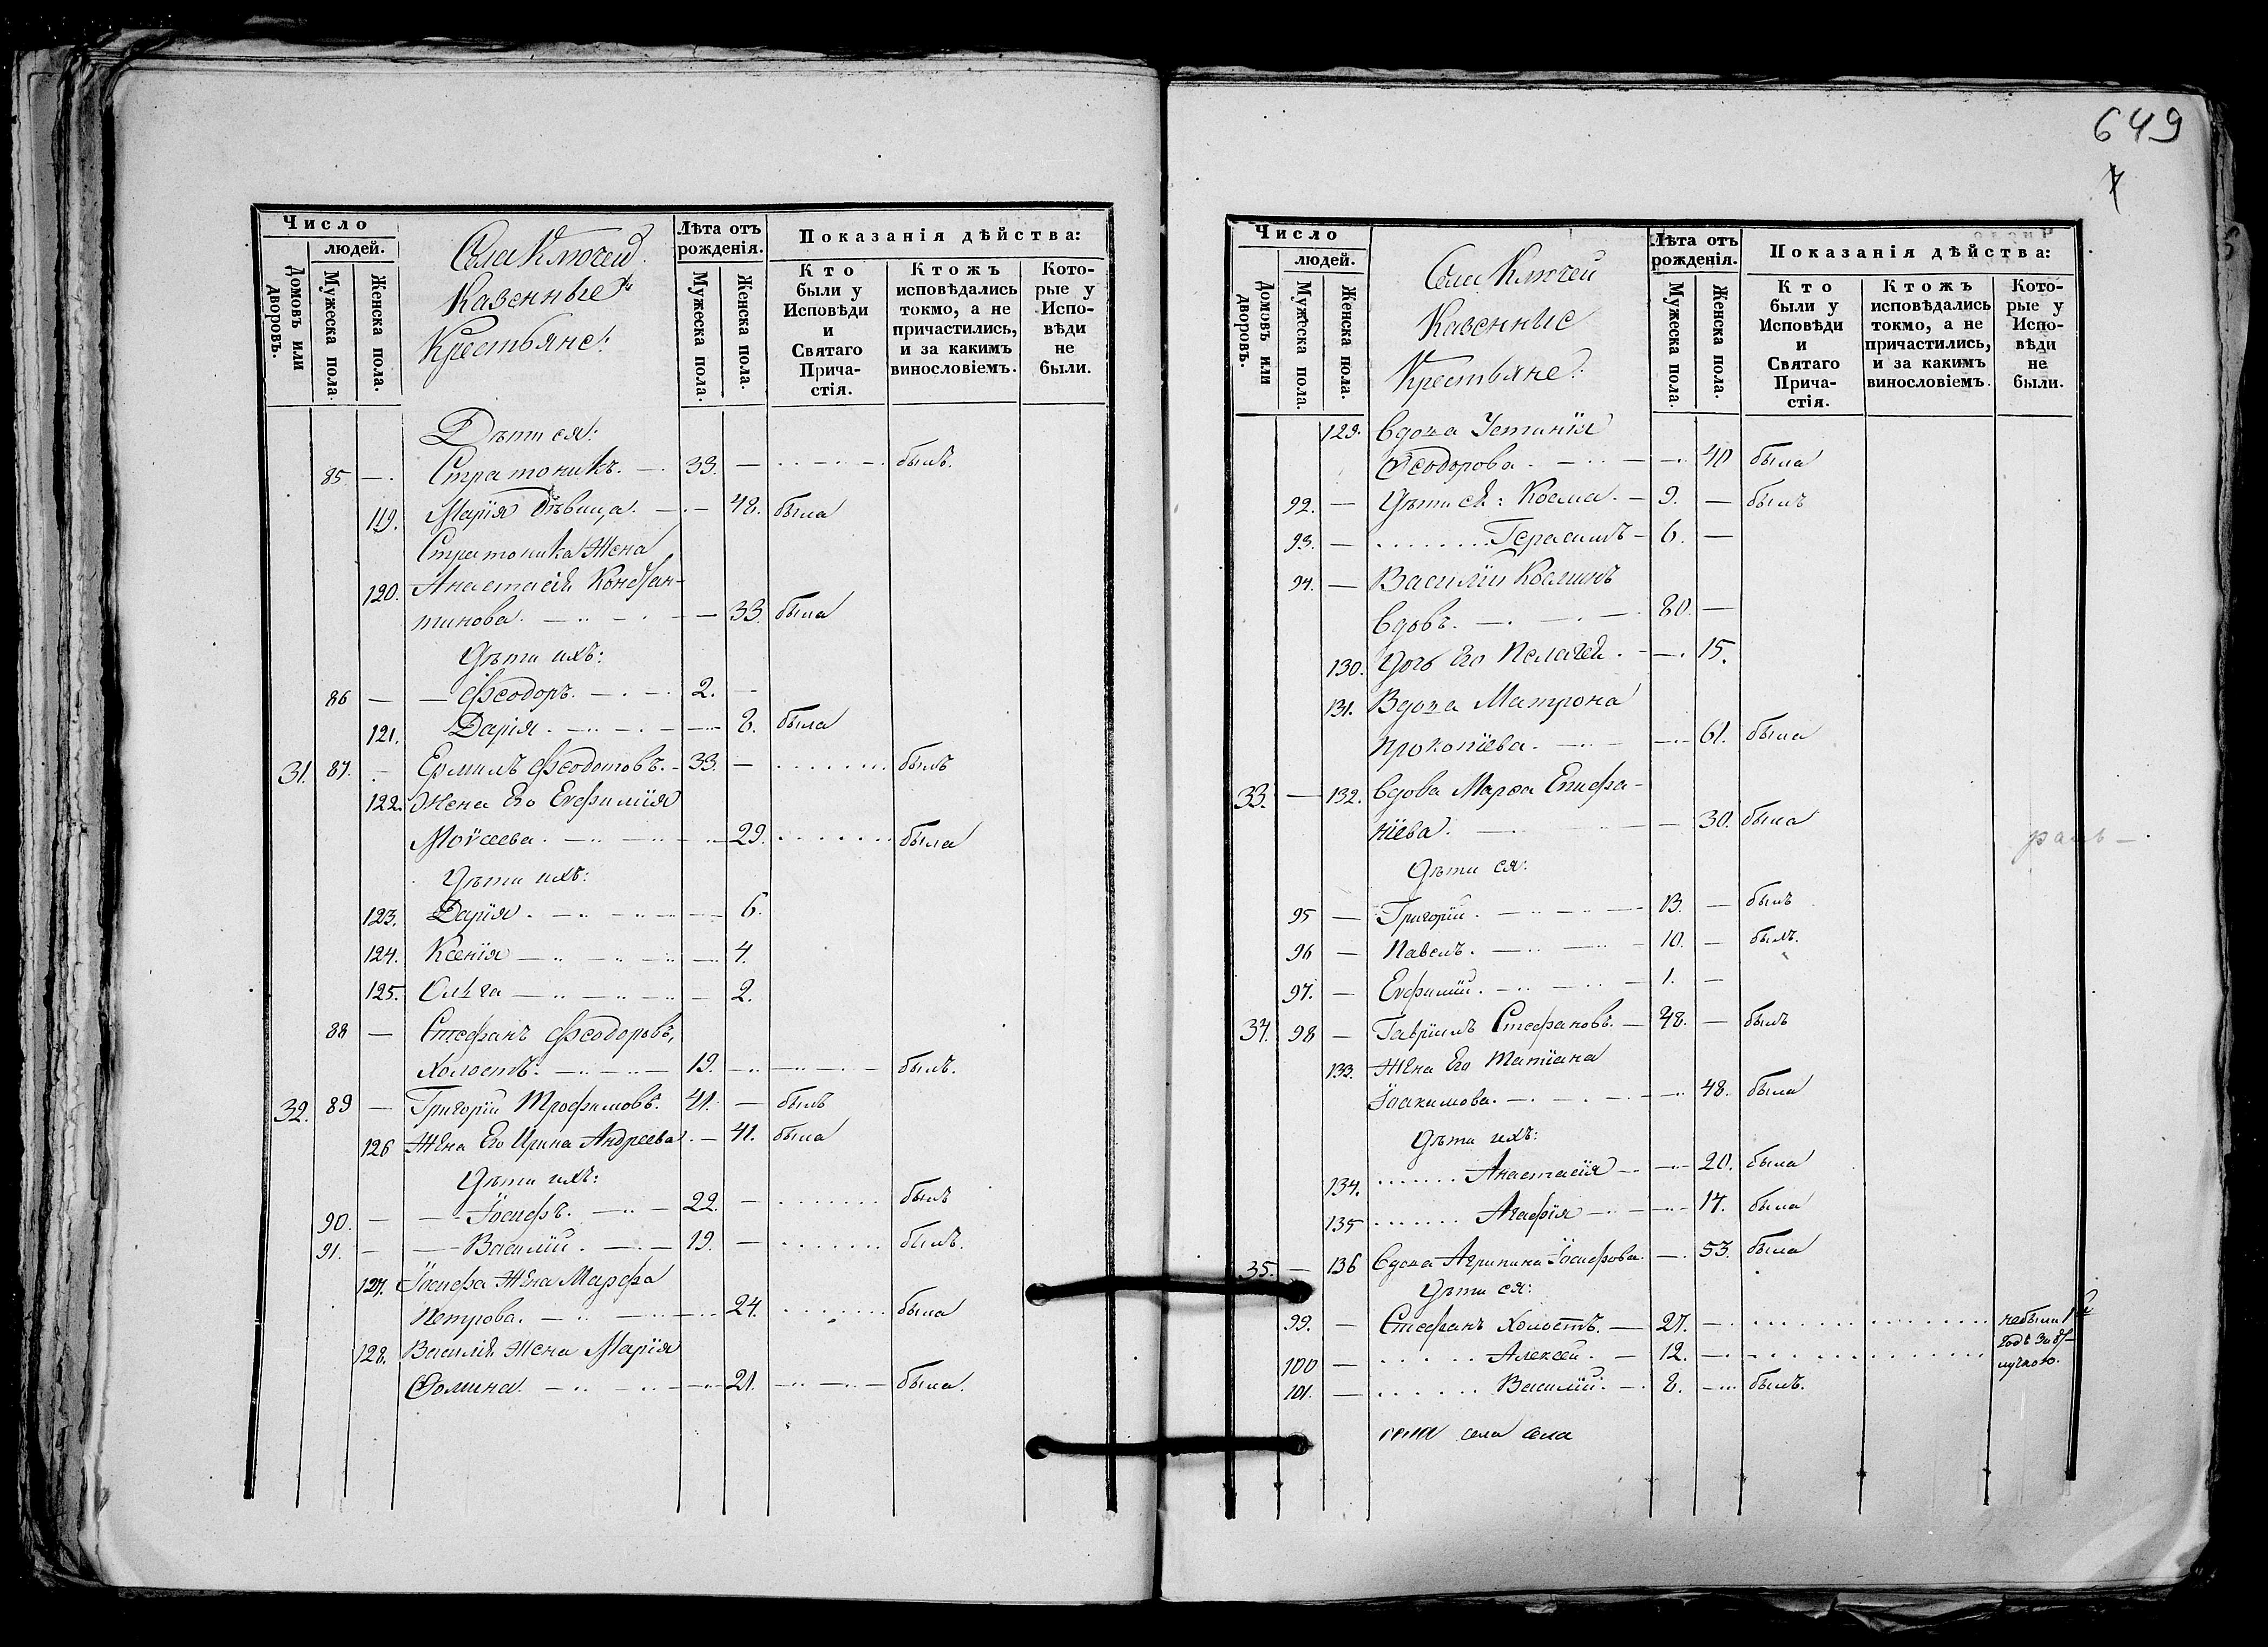 Число
людей.
Домовъ или дворовъ.
Мужеска пола.
Женска пола.
Села Ключей
Казенные
Крестьяне:
Лѣта отъ рожденія.
Мужеска пола.
Женска пола.
Показанія дѣйства:
Кто были у Исповѣди и Святаго Прича-стія.
Ктожъ исповѣдались токмо, а не причастились, и за какимъ винословіемъ.
Кото-рые у Испо-вѣди не были.
Дѣти ея:
85 — Стратоникъ. — 33. — был.
119. Марія дѣвица. — 48. была
Стратоника Жена
120. Анастасія Констан-
тинова. — 33. была
Дѣти ихъ:
86 — Феодоръ. — 2. —
121. Дарія. — 8. была
31. 87. — Ермилъ Феодотовъ. — 33. — былъ
122. Жена Его Евфимія
Моѵсеева. — 29. была
Дѣти ихъ:
123. Дарія. — 6.
124. Ксенія — 4.
125. Олга — 2.
88 — Стефанъ Феодоровъ,
Холостъ. — 19. — былъ.
32. 89 — Григорій Трофимовъ. 41. — былъ
126 Жена Его Ирина Андреева. — 41. была
Дѣти ихъ:
90. — Іосифъ. — 22. — былъ
91. — Василій. — 19. — былъ.
127. Іосифа Жена Марфа
Петрова. — 24. была
128. Василія Жена Марія
Фомина. — 21. — была.
649
7
Число
людей.
Домовъ или дворовъ.
Мужеска пола.
Женска пола.
Села Ключей
Казенные
Крестьяне:
Лѣта отъ рожденія.
Мужеска пола.
Женска пола.
Показанія дѣйства:
Кто были у Исповѣди и Святаго Прича-стія.
Ктожъ исповѣдались токмо, а не причастились, и за какимъ винословіемъ.
Кото-рые у Испо-вѣди не были.
129. Вдова Устинія
Феодорова. — 40 была
92. — Дѣти ея: Косма. — 9. — былъ
93. — Герасимъ — 6. —
94. — Василій Косминъ
Вдовъ. — 80. —
130. Дочь Его Пелагея. — 15.
131. Вдова Матрона
Прокопіева. — 61. была
33. — 132. Вдова Марфа Епифа-
ніева. — 30. была
Дѣти ея:
95 — Григорій. — 13. — былъ
96 — Павелъ. — 10. — былъ.
97. — Евфимій. — 1. —
34. 98 — Гавріилъ Стефановъ. — 48. — былъ
133. Жена Его Татіана
Іоакимова. — 48. была
Дѣти ихъ:
134. Анастасія — 20. была
135 Агафія — 17. была
35. — 136 Вдова Агрипина Іосифова. — 53. была
Дѣти ея:
99. — Стефанъ Холостъ. — 27. — небыли 1й
100 — Алексей. — 12. — годъ за от-
лучкою.
101. — Василій. — 8. — былъ.
села села села